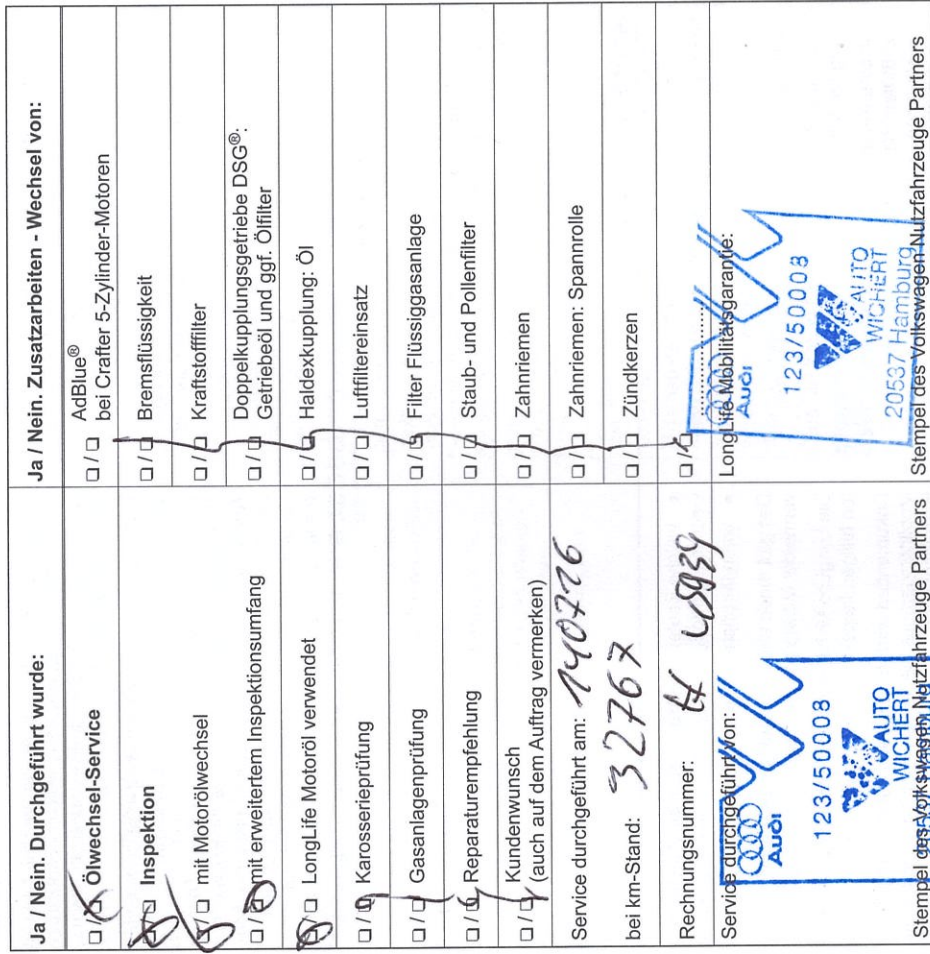 Ja / Nein. Durchgeführt wurde:
□/□ Ölwechsel-Service
□/□ Inspektion
□/□ mit Motorölwechsel
□/□ mit erweitertem Inspektionsumfang
□/□ LongLife Motoröl verwendet
□/□ Karosserieprüfung
□/□ Gasanlagenprüfung
□/□ Reparaturempfehlung
□/□ Kundenwunsch
(auch auf dem Auftrag vermerken)
Service durchgeführt am: 140716
bei km-Stand: 32767
Rechnungsnummer:
Service durchgeführt von:
Audi
123/50008
AUTO
WICHERT
Stempel des Volkswagen Nutzfahrzeuge Partners
Ja / Nein. Zusatzarbeiten - Wechsel von:
□/□ AdBlue®
bei Crafter 5-Zylinder-Motoren
□/□ Bremsflüssigkeit
□/□ Kraftstofffilter
□/□ Doppelkupplungsgetriebe DSG®:
Getriebeöl und ggf. Ölfilter
□/□ Haldexkupplung: Öl
□/□ Luftfiltereinsatz
□/□ Filter Flüssiggasanlage
□/□ Staub- und Pollenfilter
□/□ Zahnriemen
□/□ Zahnriemen: Spannrolle
□/□ Zündkerzen
□/□ ........................
LongLife Mobilitätsgarantie:
Audi
123/50008
AUTO
WICHERT
20537 Hamburg
Stempel des Volkswagen Nutzfahrzeuge Partners